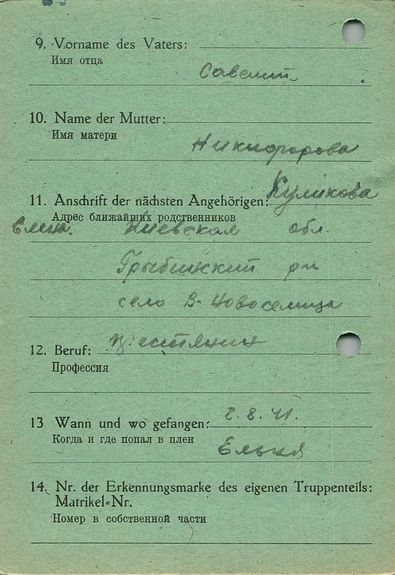 9. Vorname des Vaters:
Имя отца
Савелий
10. Name der Mutter:
Имя матери
Никифорова
11. Anschrift der nächsten Angehörigen: Куликова
Адрес ближайших родственников
Елена Киевская обл.
село В-Новоселица
12. Beruf:
Профессия
13 Wann und wo gefangen: 2.8.41.
Когда и где попал в плен
Ельня
14. Nr. der Erkennungsmarke des eigenen Truppenteils:
Matrikel-Nr.
Номер в собственной части